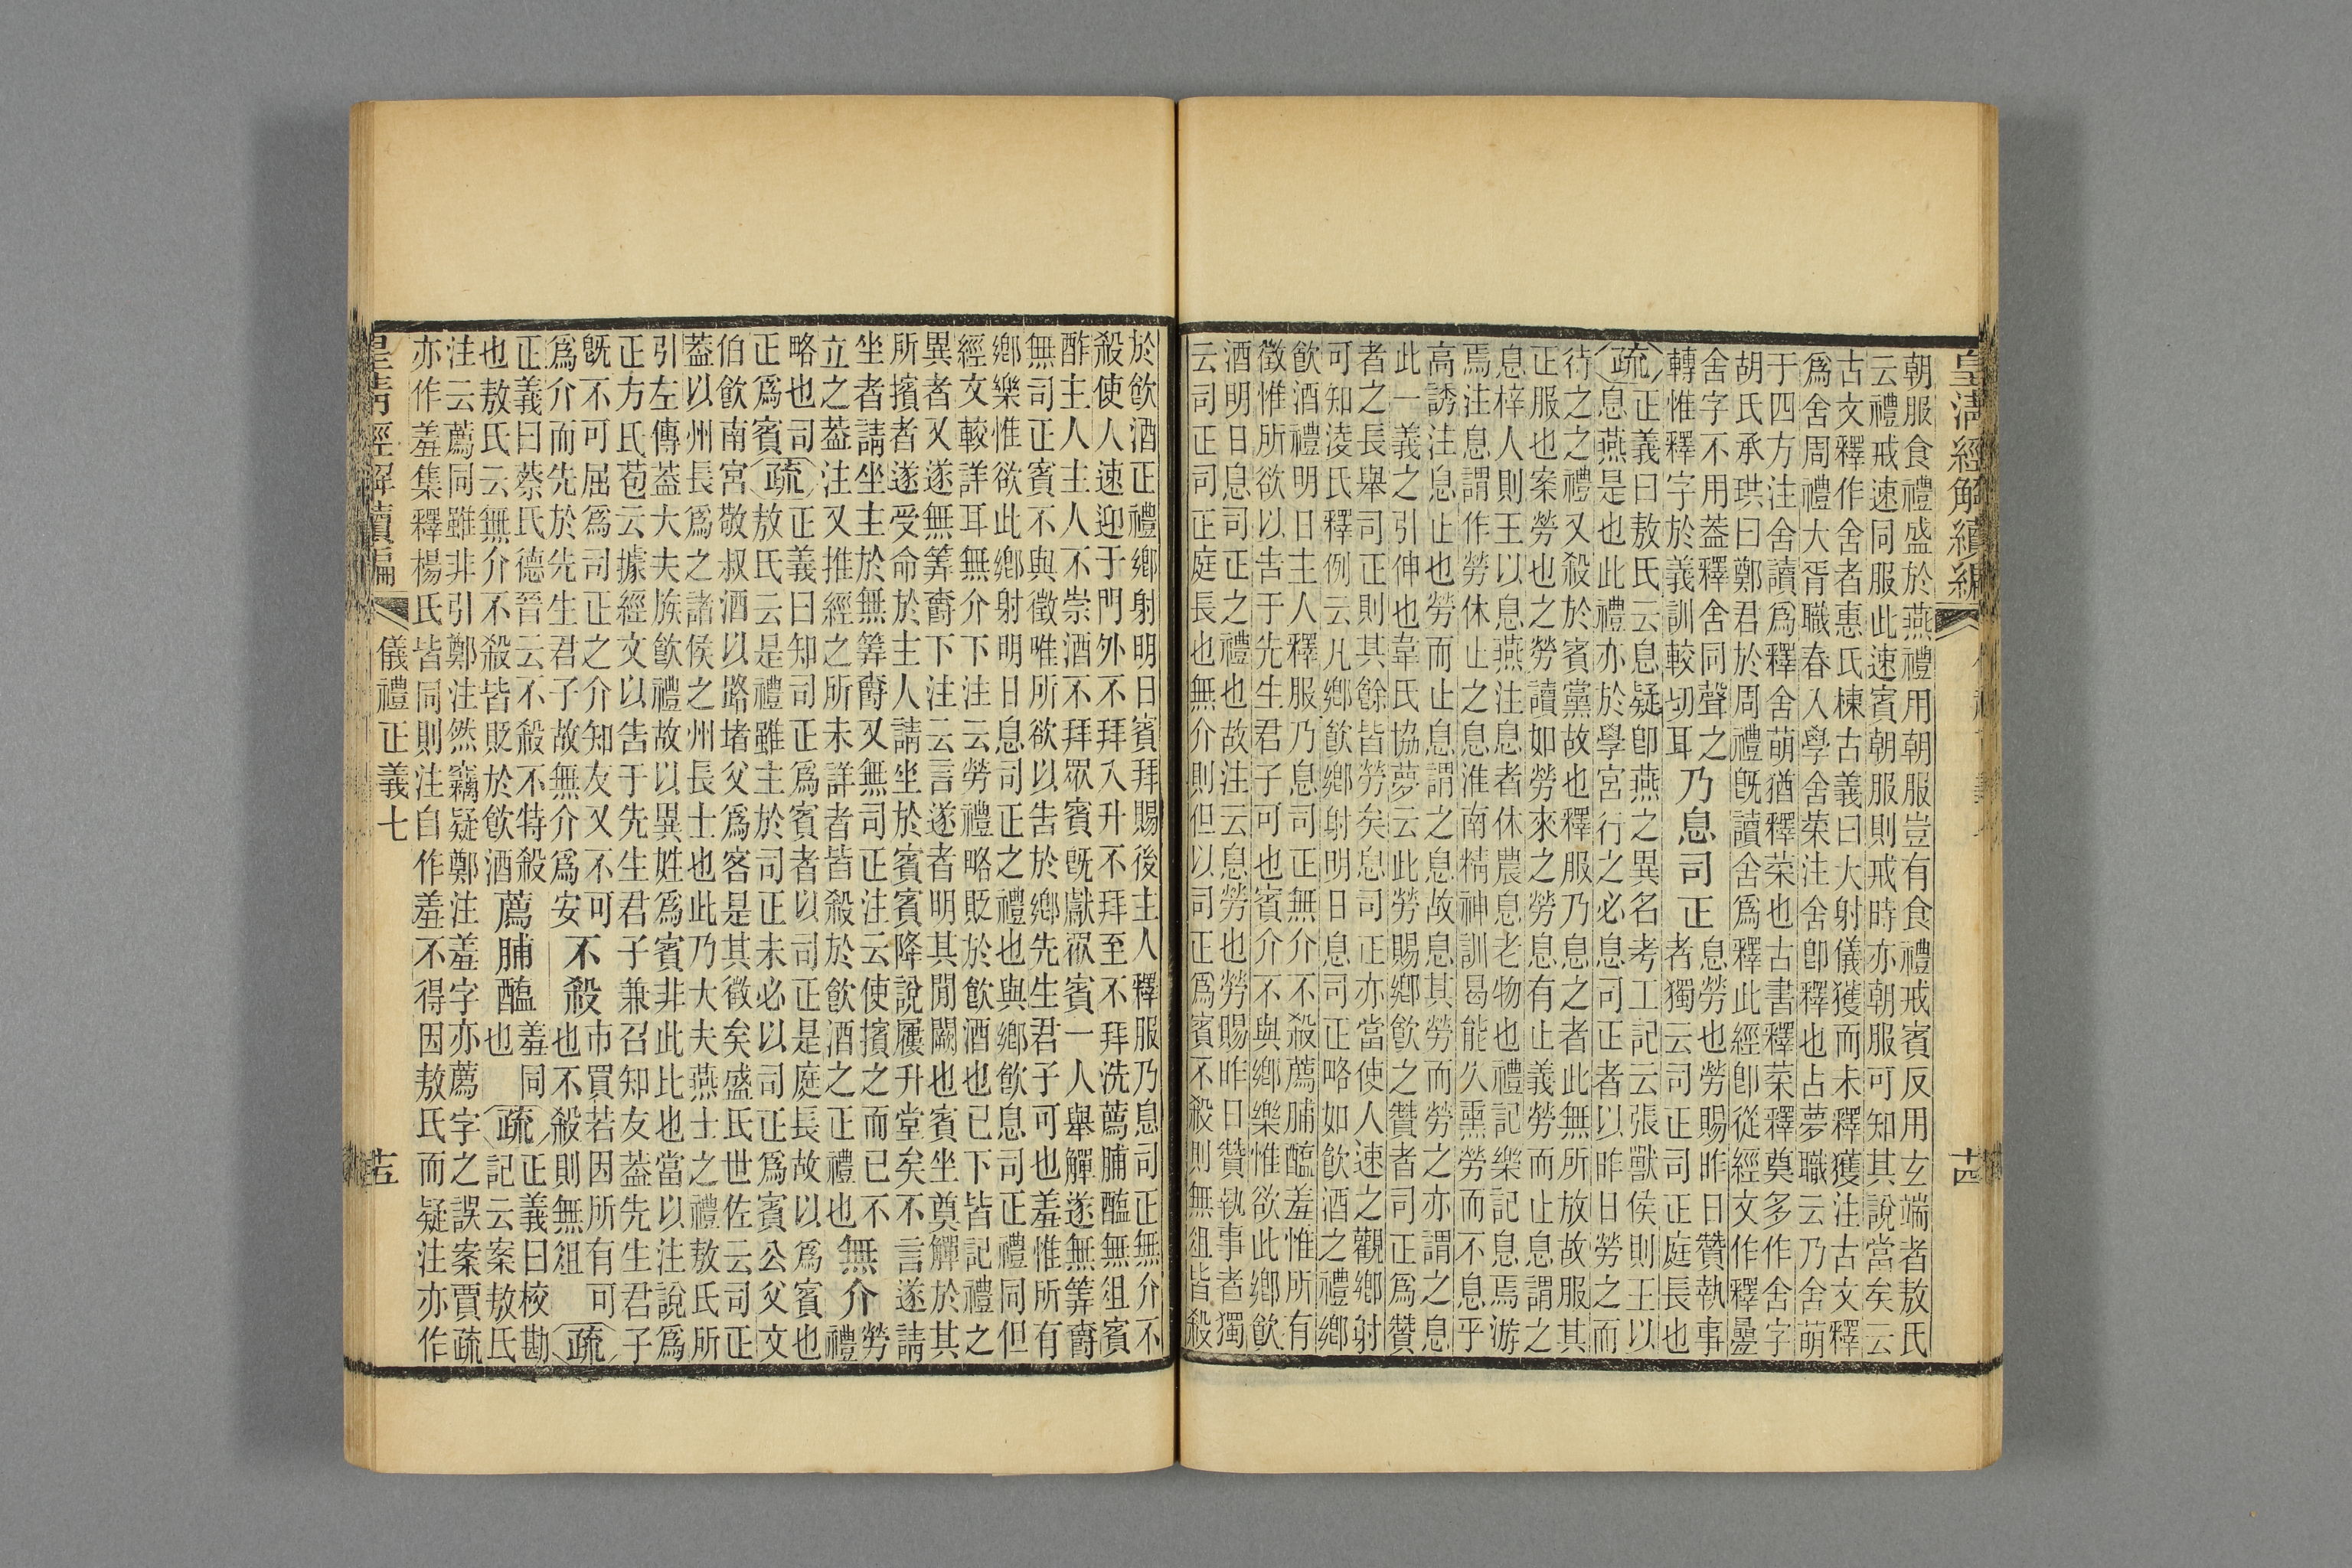 皇清經解續編
十四
朝服食禮盛於燕禮用朝服豈有食禮戒賓反用玄端者敖氏
云禮戒速同服此速賓朝服則戒時亦朝服可知其說當矣云
古文釋作舍者惠氏棟古義曰大射儀獲而未釋獲注古文釋
爲舍周禮大胥職春入學舍菜注舍卽釋也占夢職云乃舍萌
于四方注舍讀爲釋舍萌猶釋菜也古書釋菜釋奠多作舍字
胡氏承珙曰鄭君於周禮旣讀舍爲釋此經卽從經文作釋㬪
舍字不用葢釋舍同聲之
轉惟釋字於義訓較切耳
乃息司正
息勞也勞賜昨日贊執事
者獨云司正司正庭長也
疏
正義曰敖氏云息疑卽燕之異名考工記云張獸侯則王以
息燕是也此禮亦於學宮行之必息司正者以昨日勞之而
待之之禮又殺於賓黨故也釋服乃息之者此無所放故服其
正服也案勞也之勞讀如勞來之勞息有止義勞而止息謂之
息梓人則王以息燕注息者休農息老物也禮記樂記息焉游
焉注息謂作勞休止之息淮南精神訓曷能久熏勞而不息乎
高誘注息止也勞而止息謂之息故息其勞而勞之亦謂之息
此一義之引伸也韋氏協夢云此勞賜鄉飮之贊者司正爲贊
者之長舉司正則其餘皆勞矣息司正亦當使人速之觀鄉射
可知淩氏釋例云凡鄉飮鄉射明日息司正略如飮酒之禮鄉
飮酒禮明日主人釋服乃息司正無介不殺薦脯醢羞惟所有
徵惟所欲以告于先生君子可也賓介不與鄉樂惟欲此鄉飮
酒明日息司正之禮也故注云息勞也勞賜昨日贊執事者獨
云司正司正庭長也無介則但以司正爲賓不殺則無俎皆殺
於飮酒正禮鄉射明日賓拜賜後主人釋服乃息司正無介不
殺使人速迎于門外不拜入升不拜至不拜洗薦脯醢無俎賓
酢主人主人不崇酒不拜眾賓旣獻眾賓一人舉觶遂無筭爵
無司正賓不與徵唯所欲以告於鄉先生君子可也羞惟所有
鄉樂惟欲此鄉射明日息司正之禮也與鄉飮息司正禮同但
經文較詳耳無介下注云勞禮略貶於飮酒也已下皆記禮之
異者又遂無筭爵下注云言遂者明其閒闕也賓坐奠觶於其
所擯者遂受命於主人請坐於賓賓降說屨升堂矣不言遂請
坐者請坐主於無筭爵又無司正注云使擯之而已不
立之葢注又推經之所未詳者皆殺於飮酒之正禮也
無介
勞禮
略也司
正爲賓
疏
正義曰知司正爲賓者以司正是庭長故以爲賓也
敖氏云是禮雖主於司正未必以司正爲賓公父文
伯飮南宮敬叔酒以路堵父爲客是其徵矣盛氏世佐云司正
葢以州長爲之諸侯之州長士也此乃大夫燕士之禮敖氏所
引左傳葢大夫族飮禮故以異姓爲賓非此比也當以注說爲
正方氏苞云據經文以告于先生君子兼召知友葢先生君子
旣不可屈爲司正之介知友又不可
爲介而先於先生君子故無介爲安
不殺
市買若因所有可
也不殺則無俎
疏
正義曰蔡氏德晉云不殺不特殺
也敖氏云無介不殺皆貶於飮酒
薦脯醢
羞同
也
疏
正義曰校勘
記云案敖氏
注云薦同雖非引鄭注然竊疑鄭注羞字亦薦字之誤案賈疏
亦作羞集釋楊氏皆同則注自作羞不得因敖氏而疑注亦作
皇清經解續編
儀禮正義七
十五